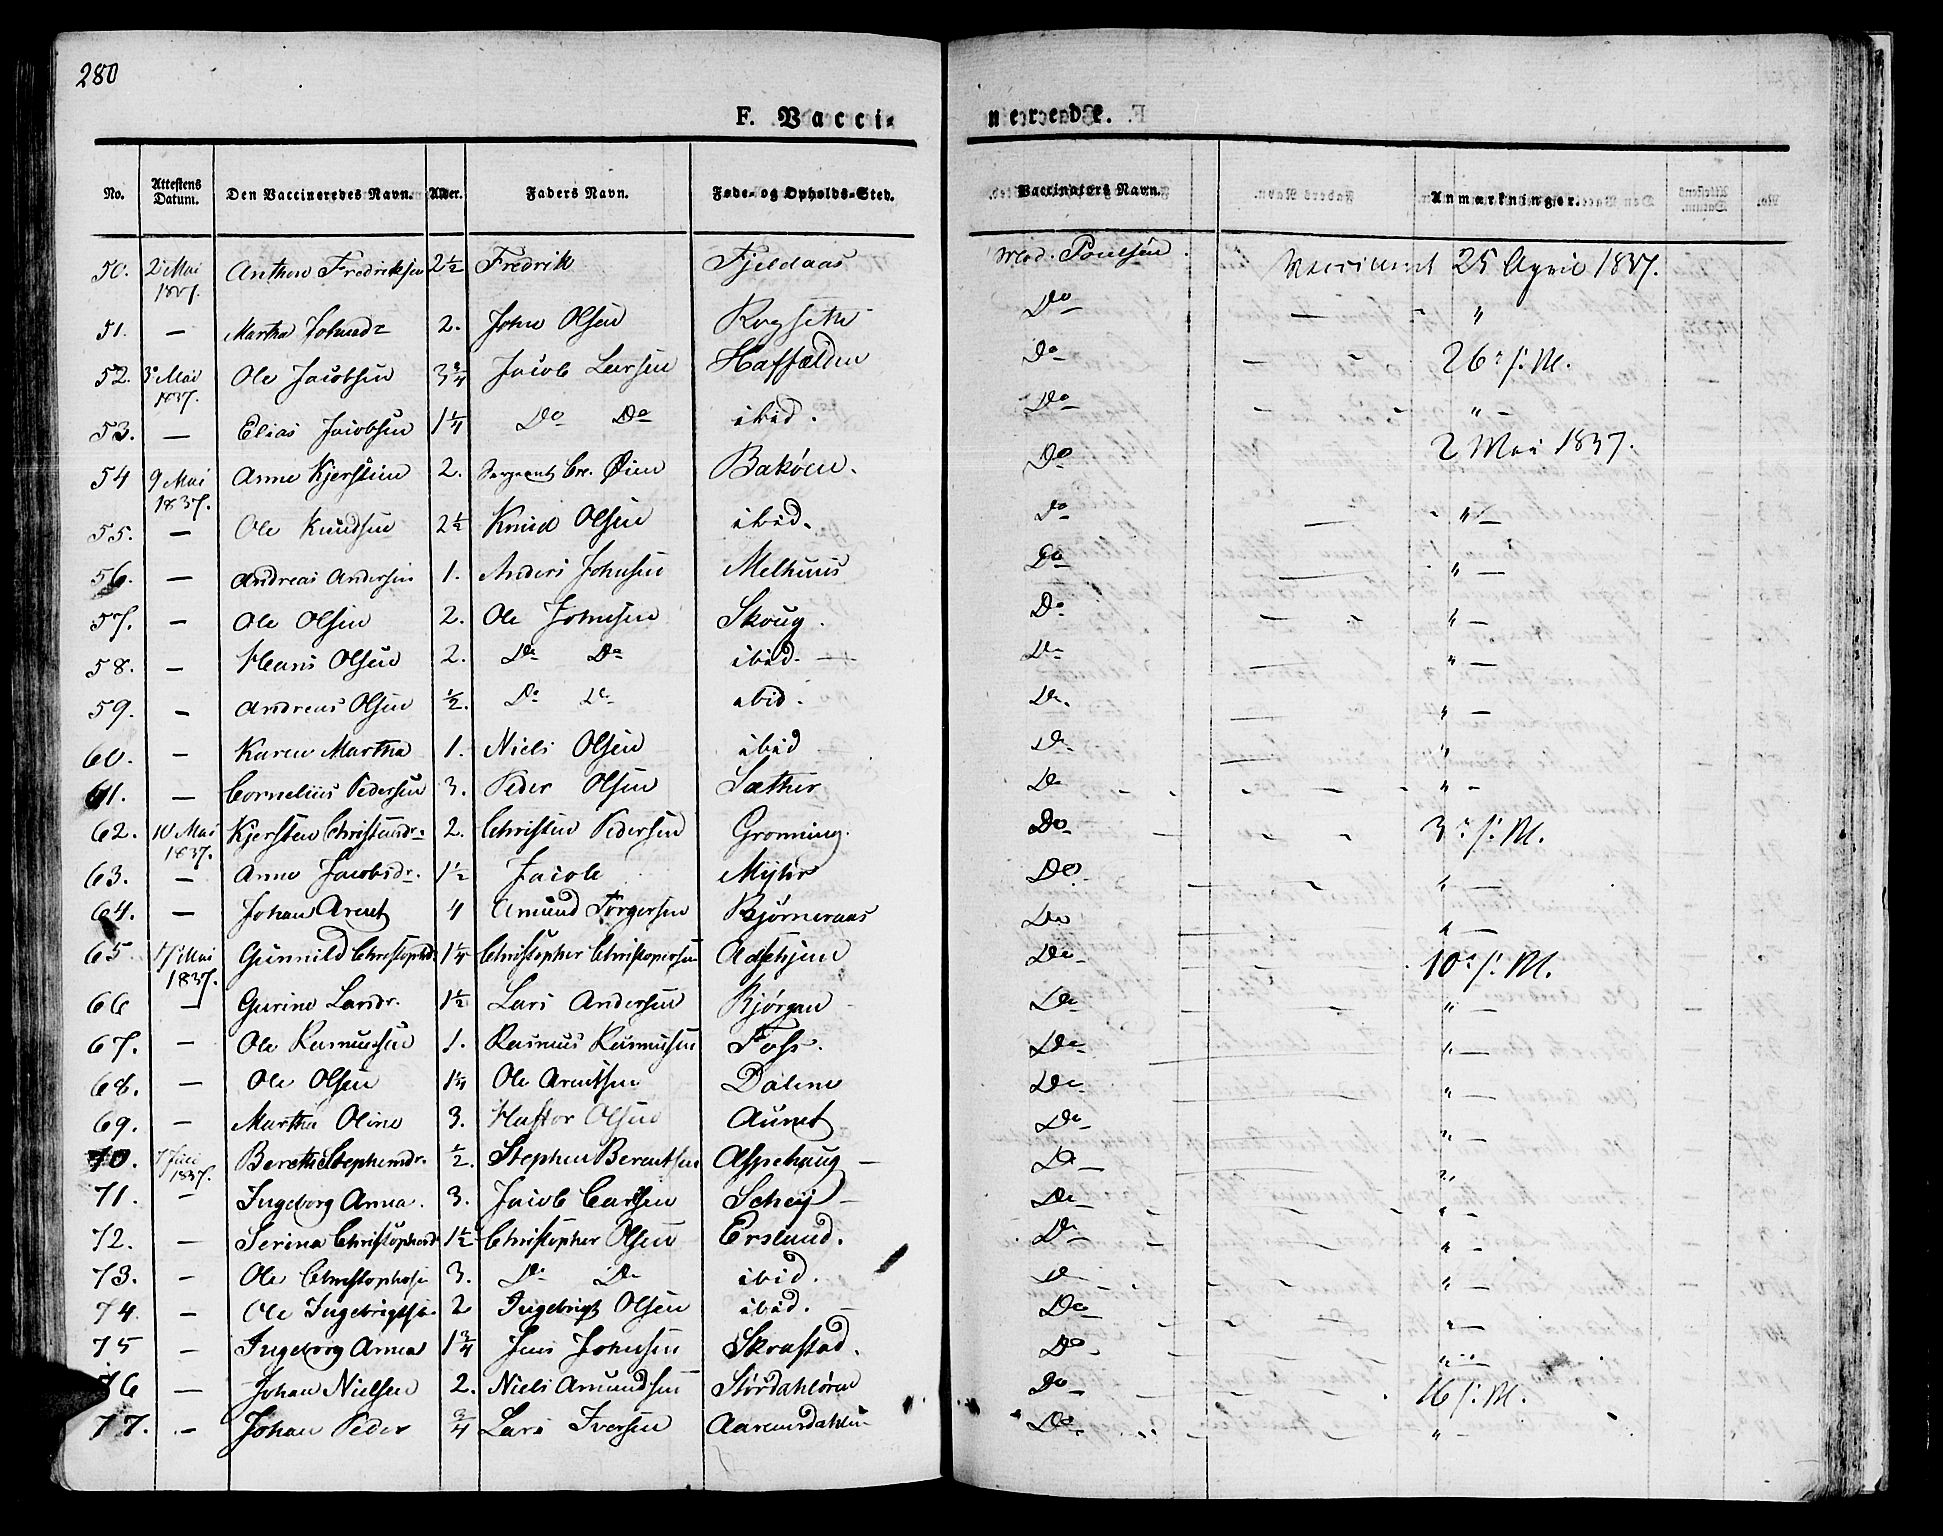 280
F. Vacci-
nerede.
No. Attestens Datum. Den Vaccineredes Navn. Alder. Faders Navn. Føde- og Opholds-Sted. Vaccinators Navn. Anmærkninger.
50. 2 Mai 1837. Anthon Fredriksen 2½ Fredrik Fjeldaas Med. Poulsen. Vaccineret 25 April 1837.
51. — Martha Johnsd 2. John Olsen Rogseth Do — "
52. 3 Mai 1837. Ole Jacobsen 3¾ Jacob Larsen Haffelden Do — 26 s. M.
53. — Elias Jacobsen 1¼ Do Do ibid. Do — " —
54 9 Mai 1837. Anne Kjerstine 2. Sergeant Chr. Øien Bakøen. Do 2 Mai 1837.
55. — Ole Knudsen 2½ Knud Olsen ibid. Do — " —
56. — Andreas Andersen 1. Anders Johnsen Melhuus Do — " —
57. — Ole Olsen 2. Ole Johnsen Skoug. Do — " —
58. — Hans Olsen 2. Do Do ibid. — Do — " —
59. — Andreas Olsen ½. Do Do ibid. Do. — " —
60. — Karen Martha 1. Niels Olsen ibid Do — "
61. — Cornelius Pedersen 3. Peder Olsen Sæther Do " -
62. 10 Mai 1837. Kjersten Christensdr. 2. Christen Pedersen Grønning. Do — 3 s. M.
63. — Anne Jacobsdr. 1½ Jacob Myhr Do. — " —
64. — Johan Arent 4 Amund Torgersen Bjørneraas Do — " —
65 17 Mai 1837. Gunnild Christophd. 1¼ Christopher Christopersen Adshjem Do — 10 s. M.
66 — Gurine Larsdr. 1½ Lars Andersen Bjørgan Do — " —
67. — Ole Rasmussen 1. Rasmus Rasmussen Foss. Do — " —
68. — Ole Olsen 1¾ Ole Arentsen Dalene Do — " —
69. — Martha Oline 3. Haftor Olsen Aunet Do — " —
70. 7 Juni 1837. Berethe Stephensdr. ½. Stephen Berentsen Aspehaug — Do — "
71. — Ingeborg Anna. 3. Jacob Carlsen Schej — Do — " -
72. — Serina Christophersd 1½ Christopher Olsen Erslund. Do — " -
73. — Ole Christophersen 3. Do Do ibid. Do — " —
74. — Ole Ingebrigtsen 2 Ingebrigt Olsen ibid. — Do — " —
75 — Ingeborg Anna 1¾ Jens Johnsen Skrastad. Do — " —
76 — Johan Nielsen 2. Niels Amundsen Størdahløren Do — 16 s. M.
77. — Johan Peder ¾ Lars Iversen Aarensdahlen Do " -